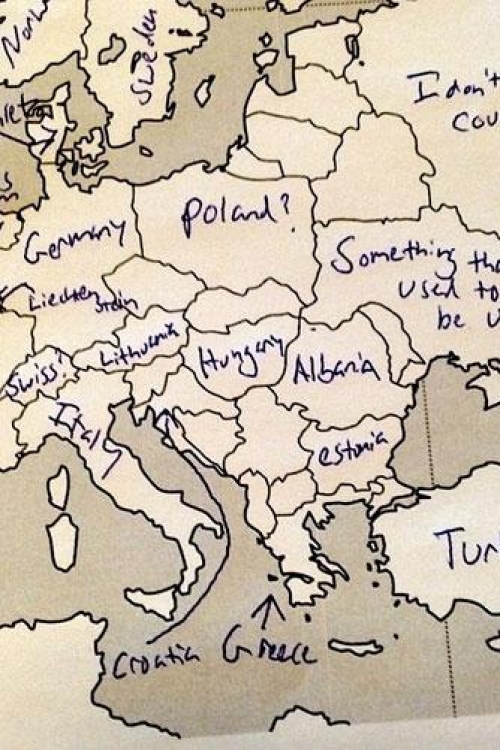 Norw
Sweden
I don't
cou
Poland?
Germany
Something tha
used to
be U
Liechtenstein
Lithuania
Swiss?
Hungary
Albania
Italy
estonia
Tur
Croatia
Greece